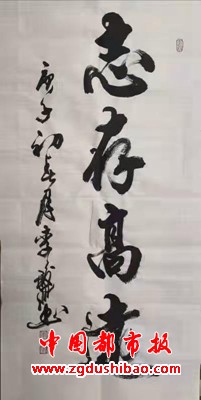 志存高远
庚子初春月李
中国都市报
www.zgdushibao.com